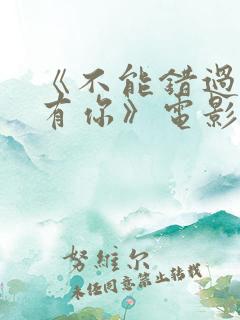 《不能錯過
有你》電影
努維尔
未任同意禁止转载